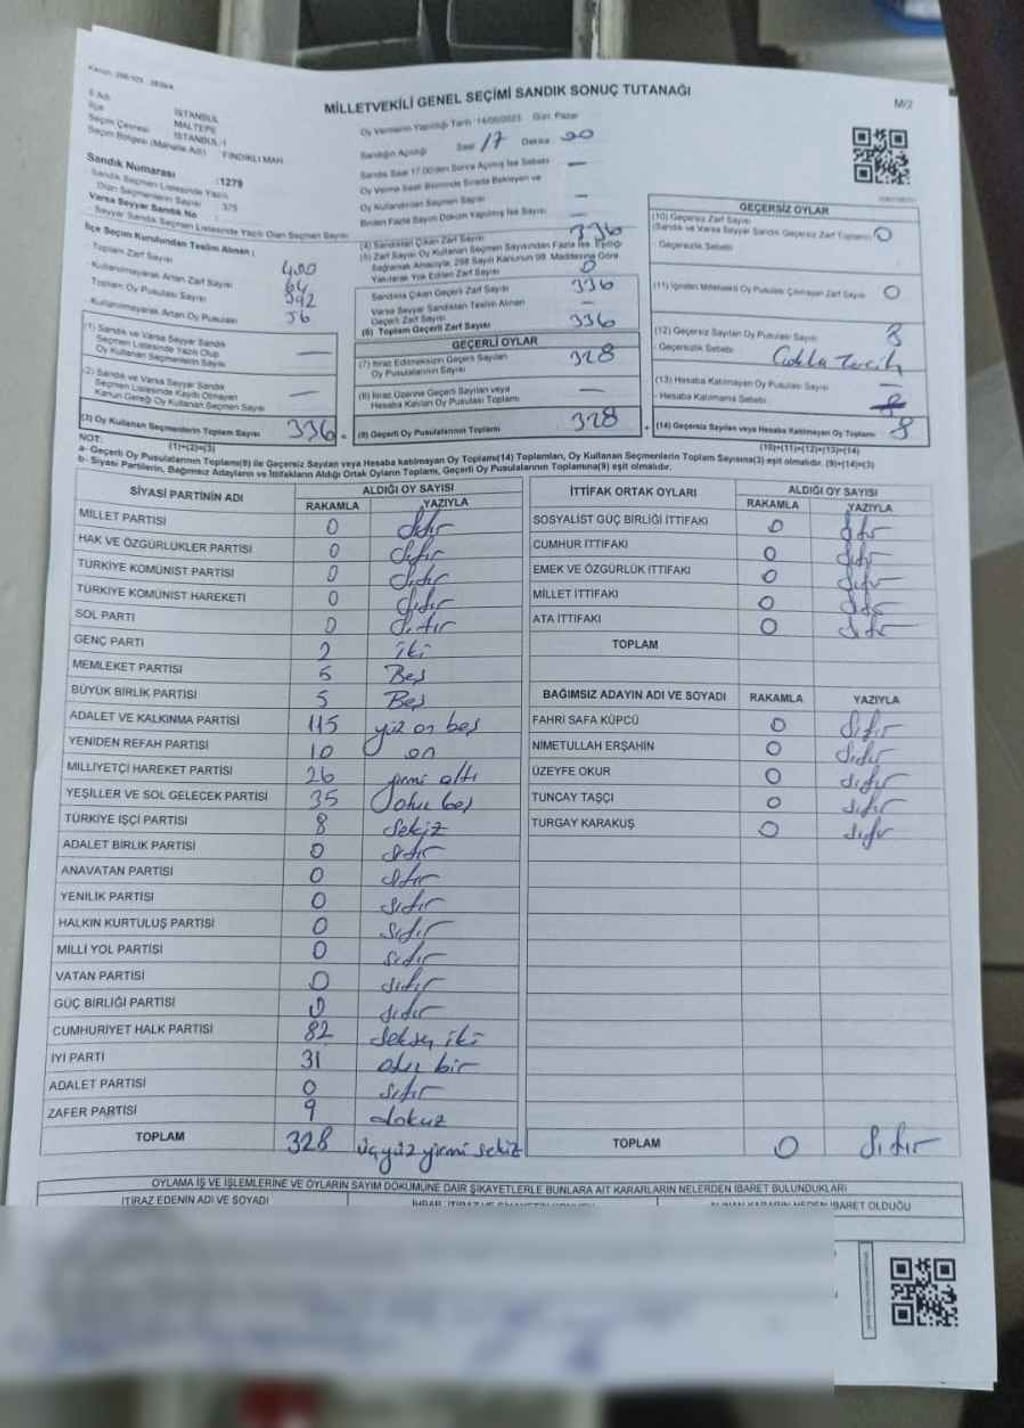 MİLLETVEKİLİ GENEL SEÇİMİ SANDIK SONUÇ TUTANAĞI
M/2
İSTANBUL
MALTEPE
Seçim Çevresi İSTANBUL-1
Seçim Bölgesi (Mahalle Adı) : FINDIKLI MAH
Oy Vermenin Yapıldığı Tarih : 14/05/2023 Gün: Pazar
Sandığın Açıldığı Saat 17 Dakika 20
Sandık Numarası : 1279
Sandık Seçmen Listesinde Yazılı
Olan Seçmenlerin Sayısı : 375
Varsa Seyyar Sandık No
Seyyar Sandık Seçmen Listesinde Yazılı Olan Seçmen Sayısı
Sandık Saat 17.00'den Sonra Açılmış İse Sebebi —
Oy Verme Saati Bitiminde Sırada Bekleyen ve
Oy Kullandırılan Seçmen Sayısı —
Birden Fazla Sayım Döküm Yapılmış İse Sayısı —
İlçe Seçim Kurulundan Teslim Alınan :
Toplam Zarf Sayısı 400
Kullanılmayarak Artan Zarf Sayısı 64
Toplam Oy Pusulası Sayısı 392
Kullanılmayarak Artan Oy Pusulası 56
(1) Sandık ve Varsa Seyyar Sandık
Seçmen Listesinde Yazılı Olup
Oy Kullanan Seçmenlerin Sayısı —
(2) Sandık ve Varsa Seyyar Sandık
Seçmen Listesinde Kaydı Olmayan
Kanun Gereği Oy Kullanan Seçmen Sayısı —
(3) Oy Kullanan Seçmenlerin Toplam Sayısı 336
(1)+(2)=(3)
(4) Sandıktan Çıkan Zarf Sayısı 336
(5) Zarf Sayısı Oy Kullanan Seçmen Sayısından Fazla İse, Eşitliği
Sağlamak Amacıyla, 298 Sayılı Kanunun 98. Maddesine Göre
Yakılarak Yok Edilen Zarf Sayısı 0
Sandıkta Çıkan Geçerli Zarf Sayısı 336
Varsa Seyyar Sandıktan Teslim Alınan
Geçerli Zarf Sayısı —
(6) Toplam Geçerli Zarf Sayısı 336
GEÇERLİ OYLAR
(7) İtiraz Edilmeksizin Geçerli Sayılan
Oy Pusulalarının Sayısı 328
(8) İtiraz Üzerine Geçerli Sayılan veya
Hesaba Katılan Oy Pusulası Toplamı —
(9) Geçerli Oy Pusulalarının Toplamı 328
GEÇERSİZ OYLAR
(10) Geçersiz Zarf Sayısı
(Sandık ve Varsa Seyyar Sandık Geçersiz Zarf Toplamı) 0
Geçersizlik Sebebi
(11) İçinden Milletvekili Oy Pusulası Çıkmayan Zarf Sayısı 0
(12) Geçersiz Sayılan Oy Pusulası Sayısı 8
Geçersizlik Sebebi Çokla Tercih
(13) Hesaba Katılmayan Oy Pusulası Sayısı —
Hesaba Katılmama Sebebi
(14) Geçersiz Sayılan veya Hesaba Katılmayan Oy Toplamı 8
(10)+(11)+(12)+(13)=(14)
NOT:
a- Geçerli Oy Pusulalarının Toplamı(9) ile Geçersiz Sayılan veya Hesaba katılmayan Oy Toplamı(14) Toplamları, Oy Kullanan Seçmenlerin Toplam Sayısına(3) eşit olmalıdır. (9)+(14)=(3)
b- Siyasi Partilerin, Bağımsız Adayların ve İttifakların Aldığı Ortak Oyların Toplamı, Geçerli Oy Pusulalarının Toplamına(9) eşit olmalıdır.
SİYASİ PARTİNİN ADI ALDIĞI OY SAYISI
RAKAMLA YAZIYLA
MİLLET PARTİSİ 0 Sıfır
HAK VE ÖZGÜRLÜKLER PARTİSİ 0 Sıfır
TÜRKİYE KOMÜNİST PARTİSİ 0 Sıfır
TÜRKİYE KOMÜNİST HAREKETİ 0 Sıfır
SOL PARTİ 0 Sıfır
GENÇ PARTİ 2 iki
MEMLEKET PARTİSİ 5 Beş
BÜYÜK BİRLİK PARTİSİ 5 Beş
ADALET VE KALKINMA PARTİSİ 115 yüz on beş
YENİDEN REFAH PARTİSİ 10 on
MİLLİYETÇİ HAREKET PARTİSİ 26 yirmi altı
YEŞİLLER VE SOL GELECEK PARTİSİ 35 otuz beş
TÜRKİYE İŞÇİ PARTİSİ 8 Sekiz
ADALET BİRLİK PARTİSİ 0 sıfır
ANAVATAN PARTİSİ 0 sıfır
YENİLİK PARTİSİ 0 sıfır
HALKIN KURTULUŞ PARTİSİ 0 sıfır
MİLLİ YOL PARTİSİ 0 sıfır
VATAN PARTİSİ 0 sıfır
GÜÇ BİRLİĞİ PARTİSİ 0 sıfır
CUMHURİYET HALK PARTİSİ 82 seksen iki
İYİ PARTİ 31 otuz bir
ADALET PARTİSİ 0 sıfır
ZAFER PARTİSİ 9 dokuz
TOPLAM 328 üçyüz yirmi sekiz
İTTİFAK ORTAK OYLARI ALDIĞI OY SAYISI
RAKAMLA YAZIYLA
SOSYALİST GÜÇ BİRLİĞİ İTTİFAKI 0 sıfır
CUMHUR İTTİFAKI 0 sıfır
EMEK VE ÖZGÜRLÜK İTTİFAKI 0 sıfır
MİLLET İTTİFAKI 0 sıfır
ATA İTTİFAKI 0 sıfır
TOPLAM
BAĞIMSIZ ADAYIN ADI VE SOYADI RAKAMLA YAZIYLA
FAHRİ SAFA KÜPCÜ 0 sıfır
NİMETULLAH ERŞAHİN 0 sıfır
ÜZEYFE OKUR 0 sıfır
TUNCAY TAŞÇI 0 sıfır
TURGAY KARAKUŞ 0 sıfır
TOPLAM 0 Sıfır
OYLAMA İŞ VE İŞLEMLERİNE VE OYLARIN SAYIM DÖKÜMÜNE DAİR ŞİKAYETLERLE BUNLARA AİT KARARLARIN NELERDEN İBARET BULUNDUKLARI
İTİRAZ EDENİN ADI VE SOYADI
İBARET OLDUĞU